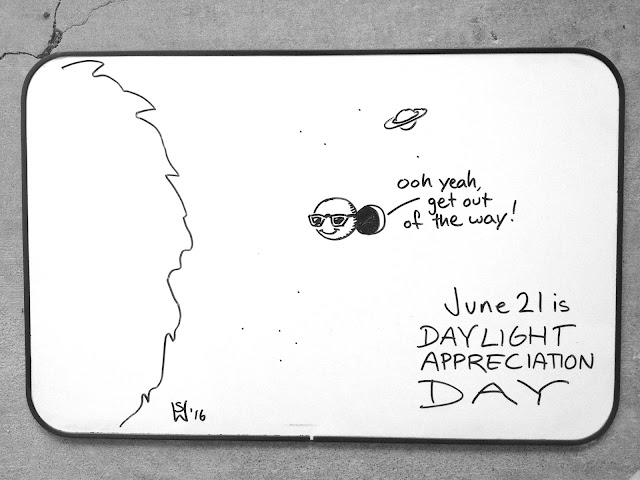 ooh yeah,
get out
of the way!
June 21 is
DAYLIGHT
APPRECIATION
DAY
SW '16